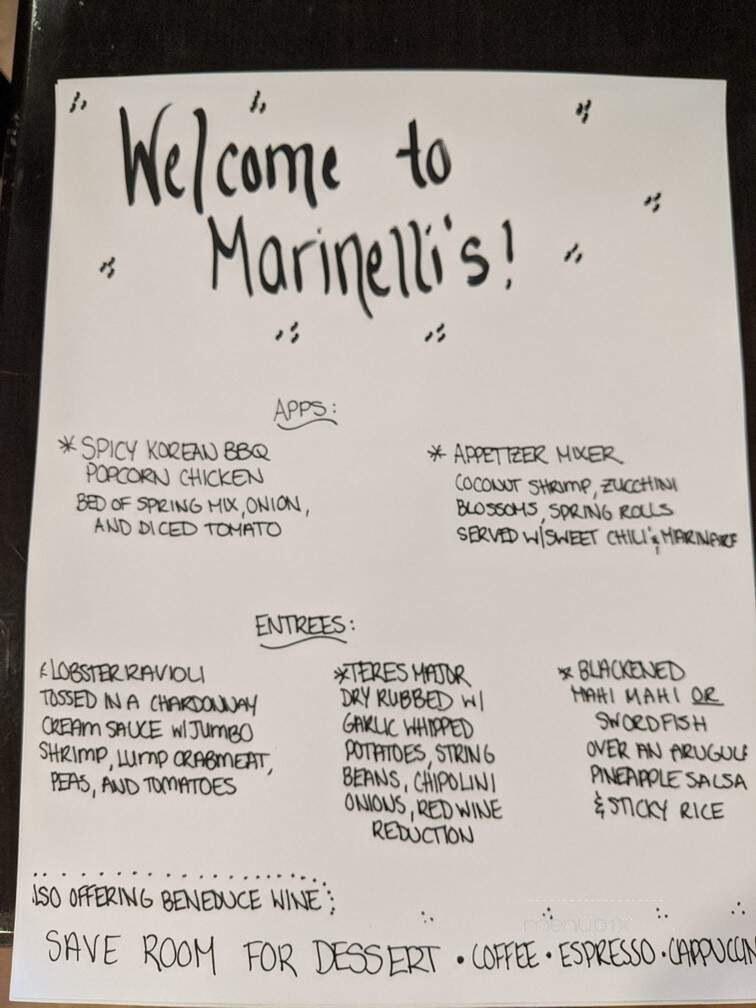 Welcome to
Marinelli's!
APPS:
* SPICY KOREAN BBQ
POPCORN CHICKEN
BED OF SPRING MIX, ONION,
AND DICED TOMATO
* APPETIZER MIXER
COCONUT SHRIMP, ZUCCHINI
BLOSSOMS, SPRING ROLLS
SERVED W/SWEET CHILI & MARINARA
ENTREES:
* LOBSTER RAVIOLI
TOSSED IN A CHARDONNAY
CREAM SAUCE W/ JUMBO
SHRIMP, LUMP CRABMEAT,
PEAS, AND TOMATOES
* TERES MAJOR
DRY RUBBED W/
GARLIC WHIPPED
POTATOES, STRING
BEANS, CHIPOLINI
ONIONS, RED WINE
REDUCTION
* BLACKENED
MAHI MAHI OR
SWORDFISH
OVER AN ARUGUL
PINEAPPLE SALSA
& STICKY RICE
LSO OFFERING BENEDUCE WINE
menupix
SAVE ROOM FOR DESSERT • COFFEE • ESPRESSO • CAPPUCCIN